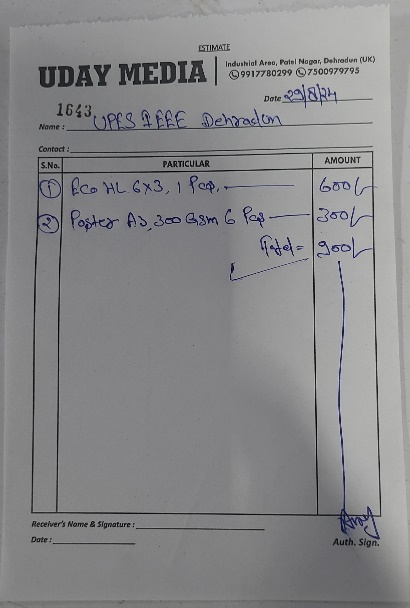 ESTIMATE
UDAY MEDIA
Industrial Area, Patel Nagar, Dehradun (UK)
9917780299 7500979795
Date 29/8/24
1643
Name: UPES IEEE Dehradun
Contact:
S.No. PARTICULAR AMOUNT
1 Eco HL 6x3, 1 Pcs. 600/-
2 Poster A3, 300 Gsm 6 Pcs 300/-
Total = 900/-
Receiver's Name & Signature:
Date:
Auth. Sign.